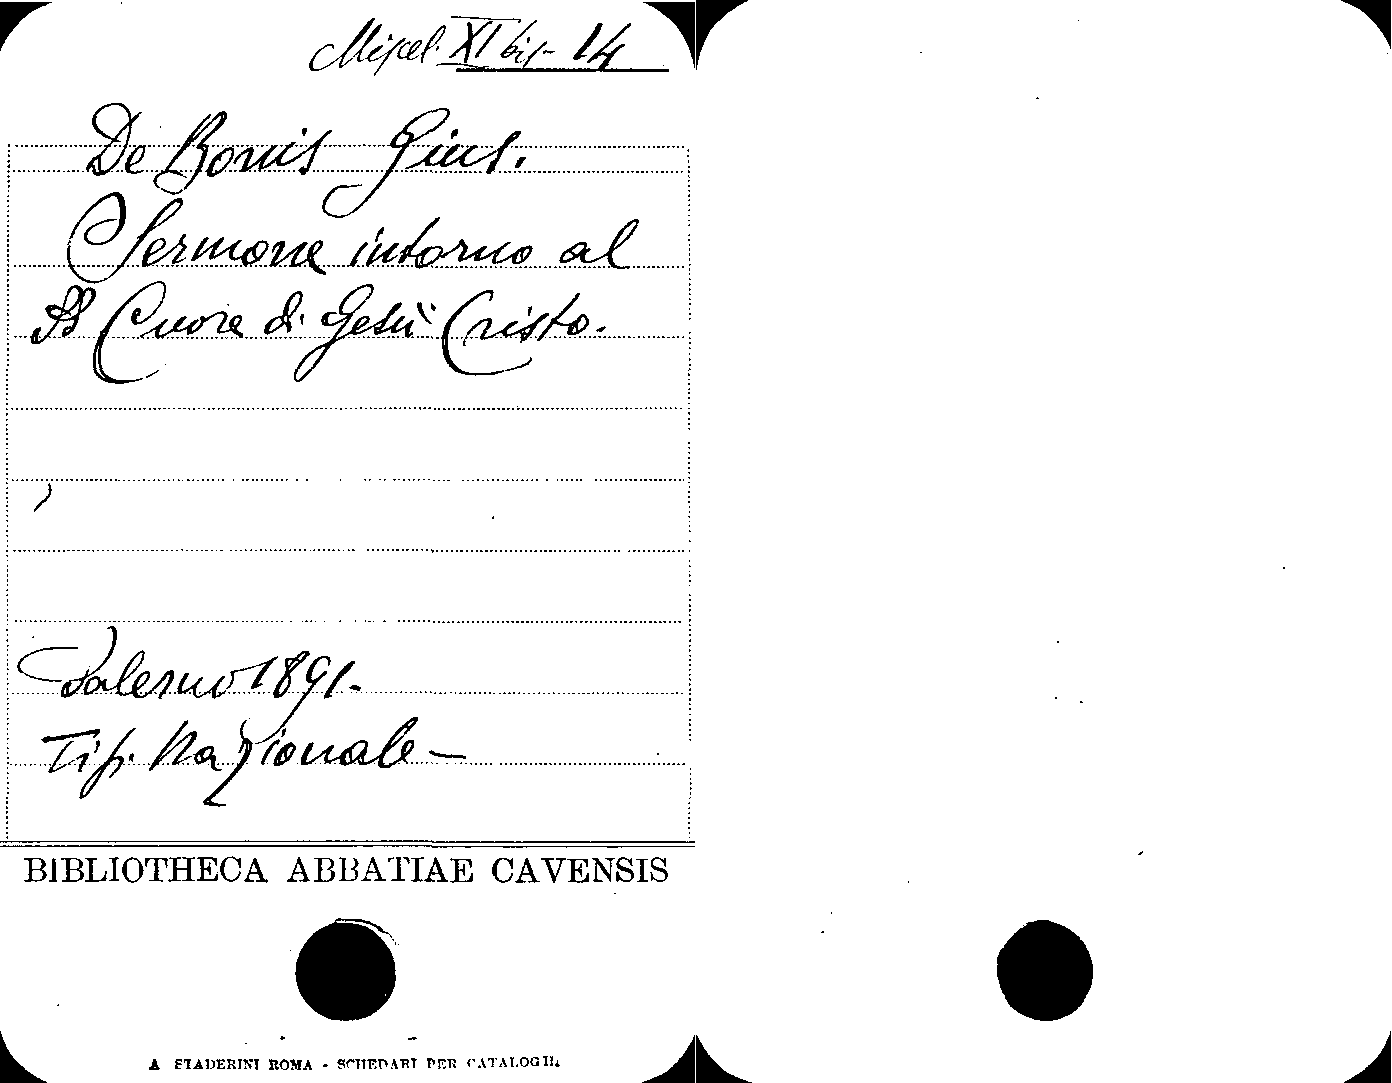 Miscel. XI bis - 14
De Bonis Gius.
Sermone intorno al
SS Cuore di Gesù Cristo.
Salerno 1891.
Tip. Nazionale -
BIBLIOTHECA ABBATIAE CAVENSIS
A STADERINI ROMA - SCHEDARI PER CATALOGHI